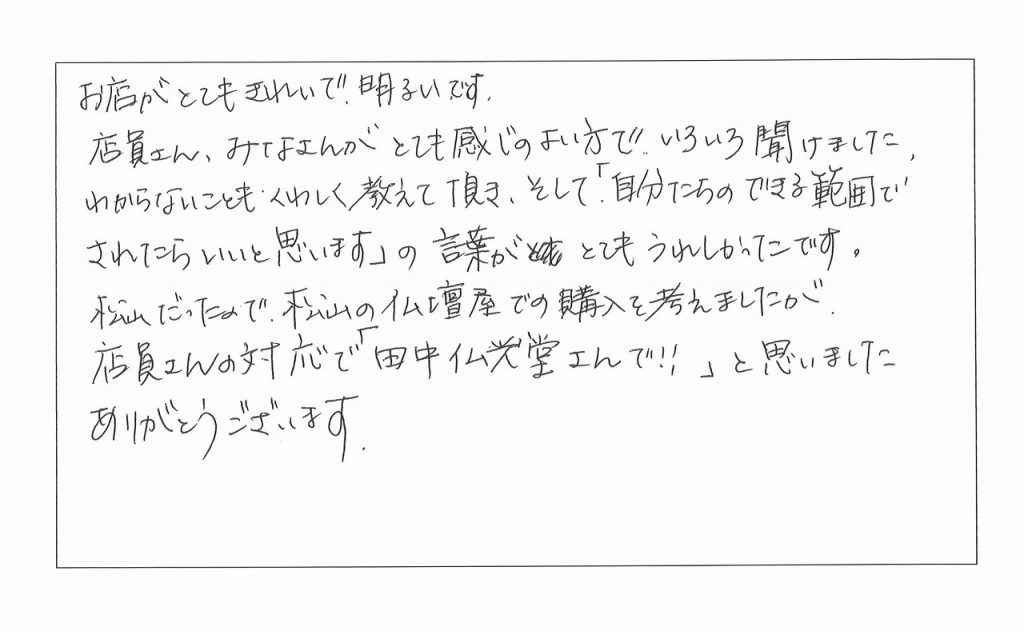 お店がとてもきれいで、明るいです.
店員さん、みなさんがとても感じのよい方で、いろいろ聞けました,
わからないことも、くわしく教えて頂き、そして「自分たちのできる範囲で
されたらいいと思います」の言葉がとてもうれしかったです。
松山だったので、松山の仏壇屋での購入を考えましたが、
店員さんの対応で「田中仏光堂さんで!!」と思いました
ありがとうございます.